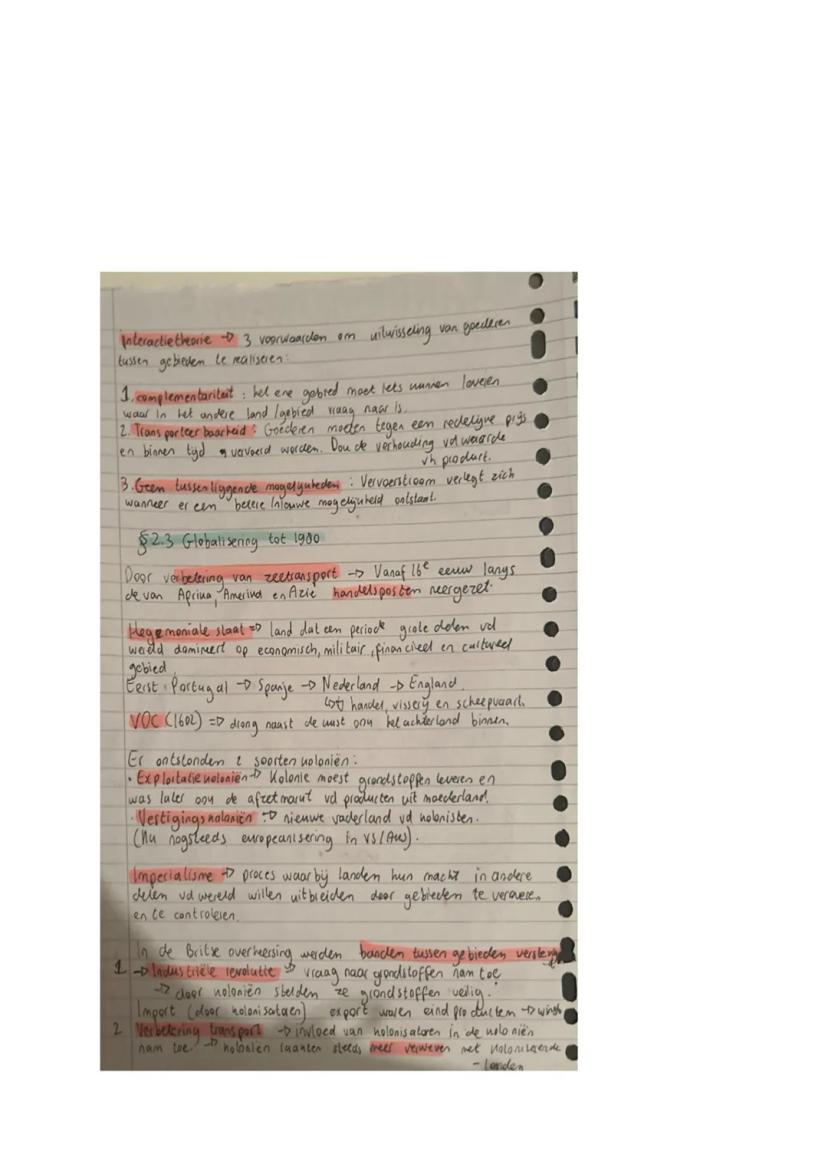 Interactietheorie → 3 voorwaarden om uitwisseling van goederen
tussen gebieden te realiseren:
1. complementariteit : het ene gebied moet iets kunnen leveren
waar in het andere land/gebied vraag naar is.
2. Transporteerbaarheid : Goederen moeten tegen een redelijke prijs
en binnen tijd vervoerd worden. Ook de verhouding vd waarde
vh product.
3. Geen tussenliggende mogelijkheden : Vervoerstroom verlegt zich
wanneer er een betere/nieuwe mogelijkheid ontstaat.
§2.3 Globalisering tot 1900
Door verbetering van zeetransport → Vanaf 16e eeuw langs
de van Afrika, Amerika en Azie handelsposten neergezet.
Hegemoniale staat => land dat een periode grote delen vd
wereld domineert op economisch, militair, financieel en cultureel
gebied
Eerst: Portugal → Spanje → Nederland → England.
handel, visserij en scheepvaart.
VOC (1602) => drong naast de kust ook het achterland binnen.
Er ontstonden 2 soorten koloniën:
• Exploitatiekoloniën → Kolonie moest grondstoffen leveren en
was later ook de afzetmarkt vd producten uit moederland.
• Vestigingskoloniën → nieuwe vaderland vd kolonisten.
(Nu nogsteeds europeanisering in VS/AUS).
Imperialisme → proces waarbij landen hun macht in andere
delen vd wereld willen uitbreiden door gebieden te veroveren
en te controleren.
In de Britse overheersing werden banden tussen gebieden versterkt
1 → Industriële revolutie → vraag naar grondstoffen nam toe
→ door koloniën stelden ze grondstoffen veilig.
Import (door kolonisatoren) export waren eind producten → winst
2 Verbetering transport → invloed van kolonisatoren in de koloniën
nam toe. → koloniën raakten steeds meer verweven met koloniserende
- landen